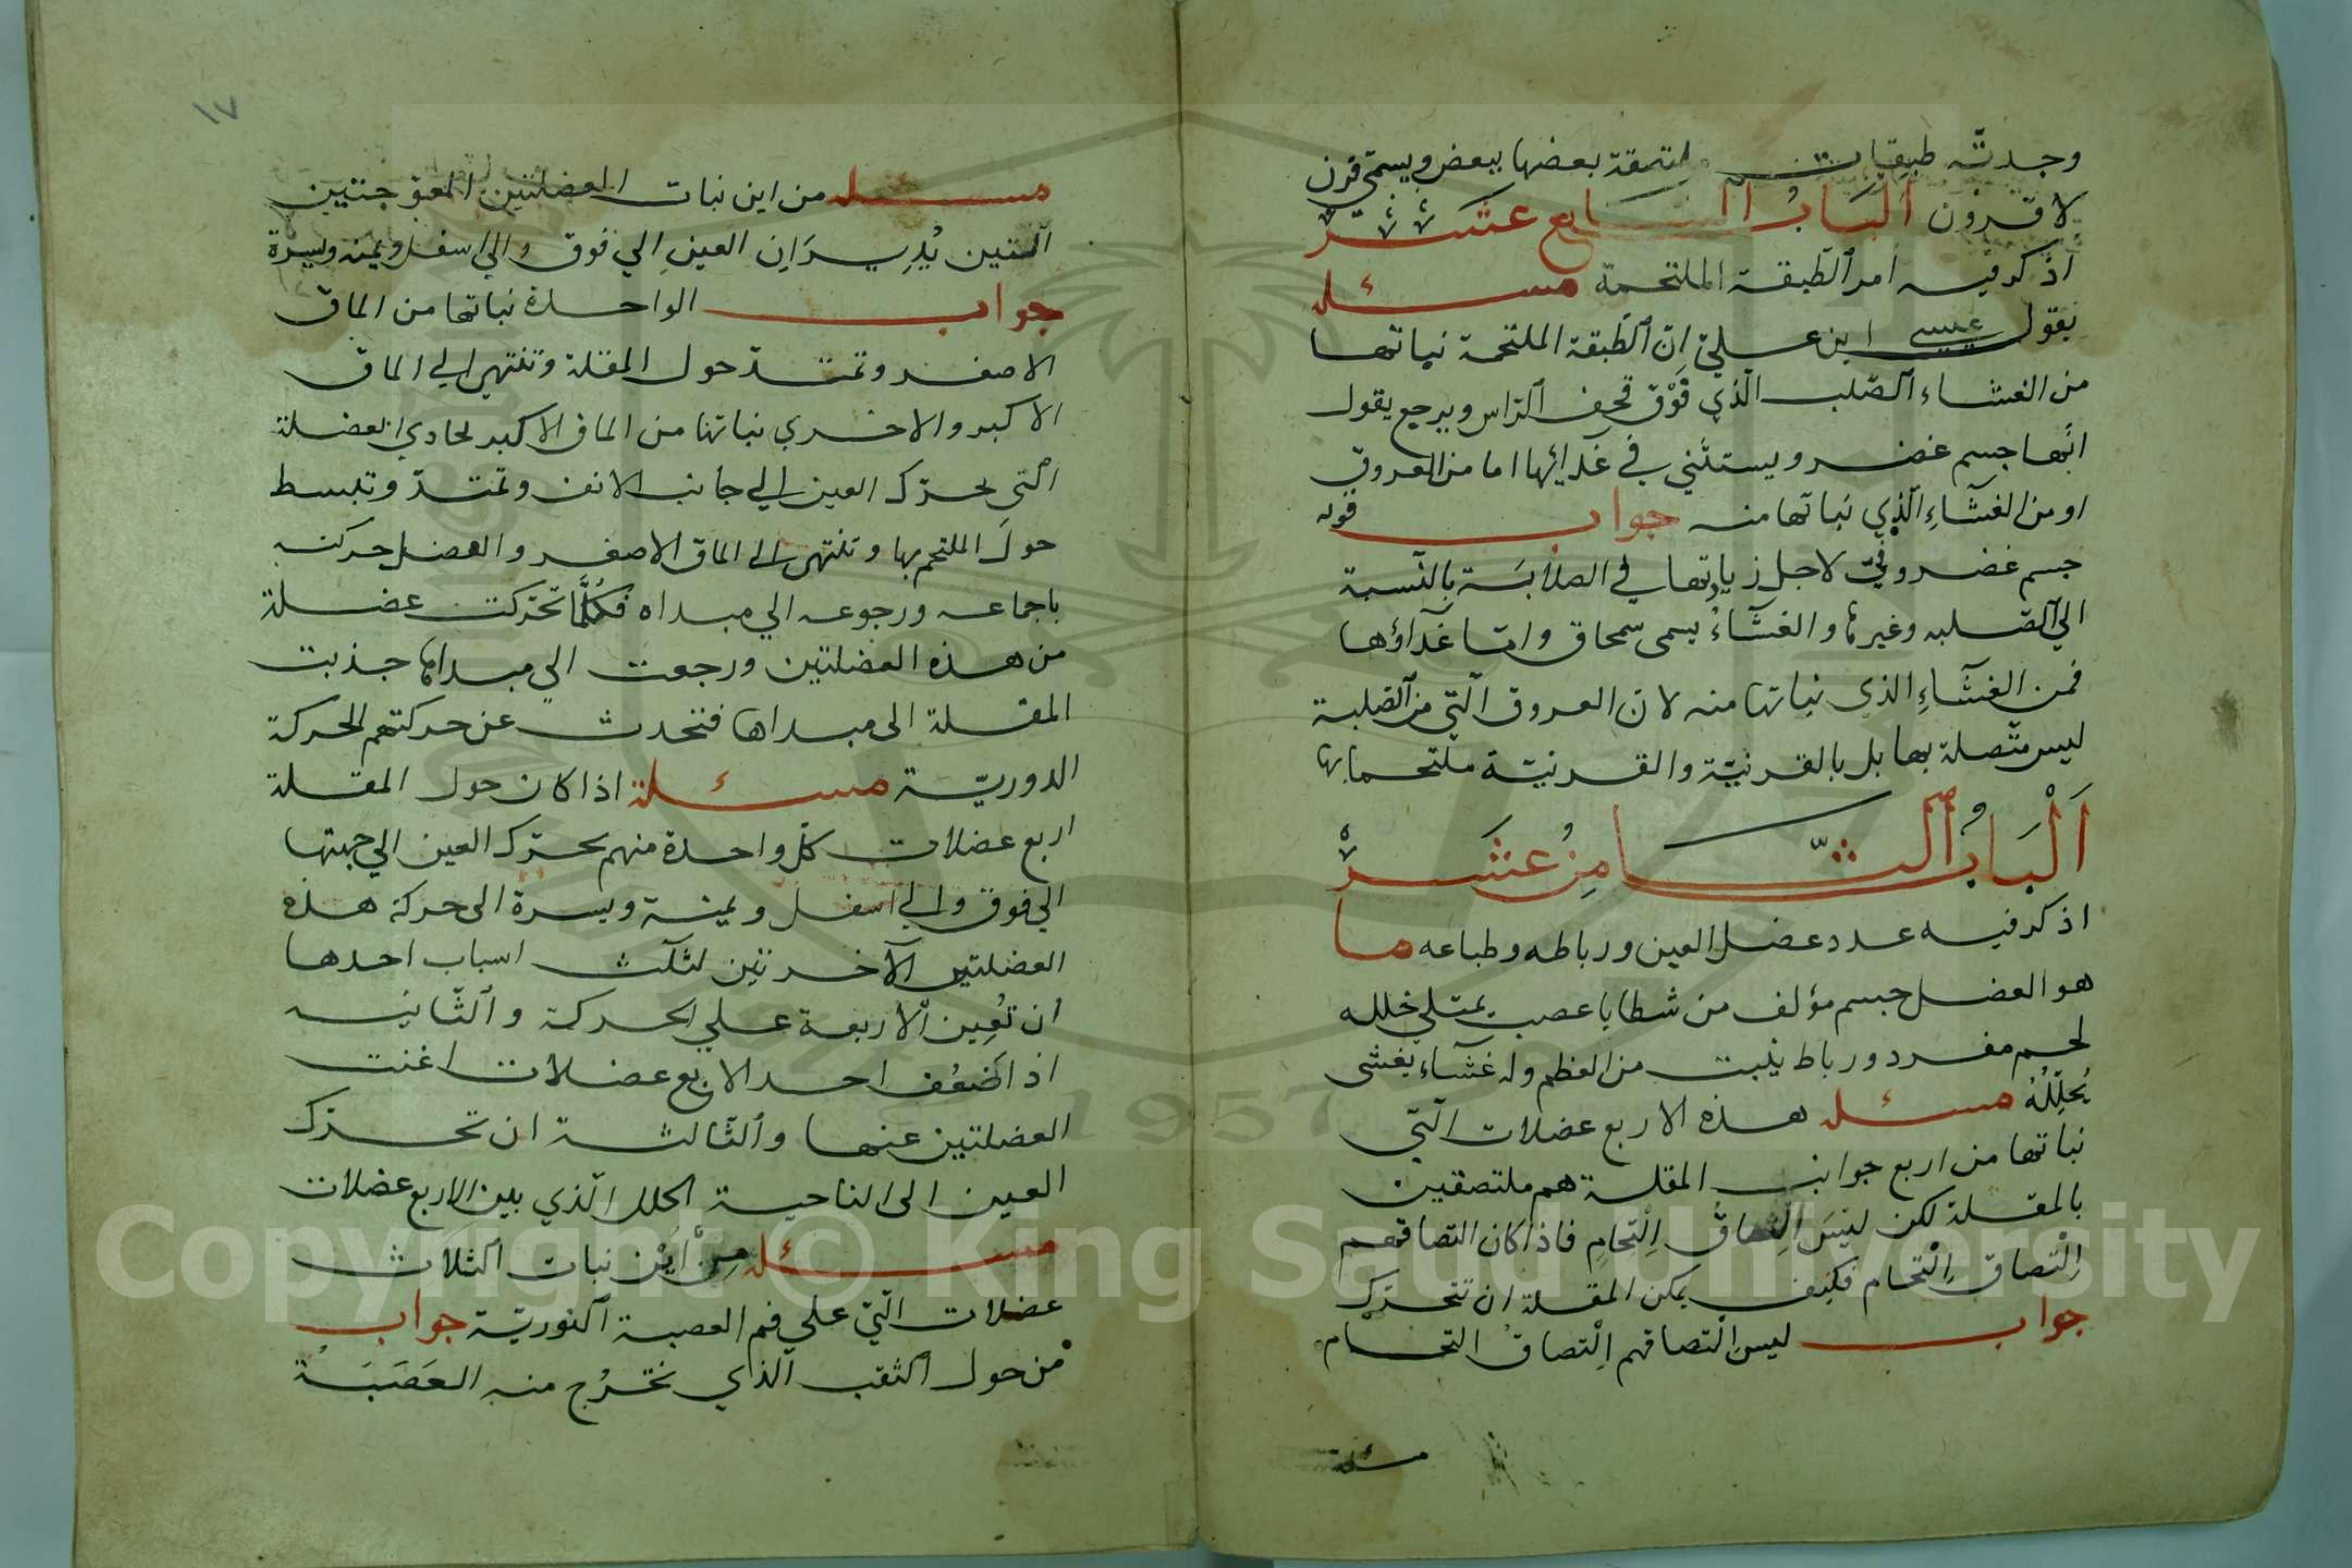 وجدته طبقات ملتصقة بعضها ببعض ويسمى قرن
لا قرون الباب السابع عشر
اذكر فيه امر الطبقة الملتحمة مسئله
يقول عيسى ابن علي ان الطبقة الملتحمة نباتها
من الغشاء الصلب الذي فوق قحف الراس ويرجع يقول
انها جسم غضر ويستثني في غدائها اما من العروق
او من الغشاء الذي نباتها منه جواب قوله
جسم غضروفي لاجل زيادتها في الصلابة بالنسبة
الي الصلبه وغيرها والغشاء يسمى سمحاق واما غداؤها
فمن الغشاء الذي نباتها منه لان العروق التي من الصلبة
ليس متصلة بها بل بالقرنية والقرنية ملتحما بها
الباب الثامن عشر
اذكر فيه عدد عضل العين ورباطه وطباعه ما
هو العضل جسم مؤلف من شطايا عصب يمتلي خلله
لحم مفرد ورباط ينبت من العظم وله غشاء يغشى
يجلله مسئله هذه الاربع عضلات التي
نباتها من اربع جوانب المقلة هم ملتصقين
بالمقلة لكن ليس التصاق التحام فاذا كان التصاقهم
التصاق التحام فكيف يمكن المقلة ان تتحرك
جواب ليس التصاقهم التصاق التحام
مسئلة
١٧
مسئله من اين نبات العضلتين المعوجتين
التين يديران العين الي فوق والي اسفل ويمنه ويسرة
جواب الواحدة نباتها من الماق
الاصغر وتمتد حول المقلة وتنتهي الي الماق
الاكبر والاخري نباتها من الماق الاكبر لحادي العضلة
التي تحرك العين الي جانب الانف وتمتد وتلبسط
حول الملتحم بها وتنتهي الي الماق الاصغر والعضل حركته
باجماعه ورجوعه الي مبداه فكلما تحركت عضلة
من هذه العضلتين ورجعت الي مبداها جذبت
المقلة الى مبداها فتحدث عن حركتهم الحركة
الدورية مسئلة اذا كان حول المقلة
اربع عضلات كل واحدة منهم تحرك العين الي جهتها
الي فوق والي اسفل ويمينة ويسرة الى حركة هذه
العضلتين الآخرتين لثلث اسباب احدها
ان تعين الاربعة علي الحركة والثانيه
اذا ضعف احد الاربع عضلات اغنت
العضلتين عنها والثالثة ان تحرك
العين الى الناحية الخلل الذي بين الاربع عضلات
مسئله من اين نبات الثلاث
عضلات التي علي فم العصبة النورية جواب
من حول الثقب الذي تخرج منه العصبة
1957
Copyright © King Saud University